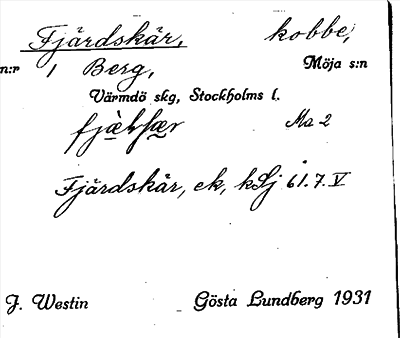 Fjärdskär, kobbe,
n:r 1 Berg, Möja s:n
Värmdö skg, Stockholms l.
Ma 2
Fjärdskär, ek, kSj 61.7.V
J. Westin Gösta Lundberg 1931